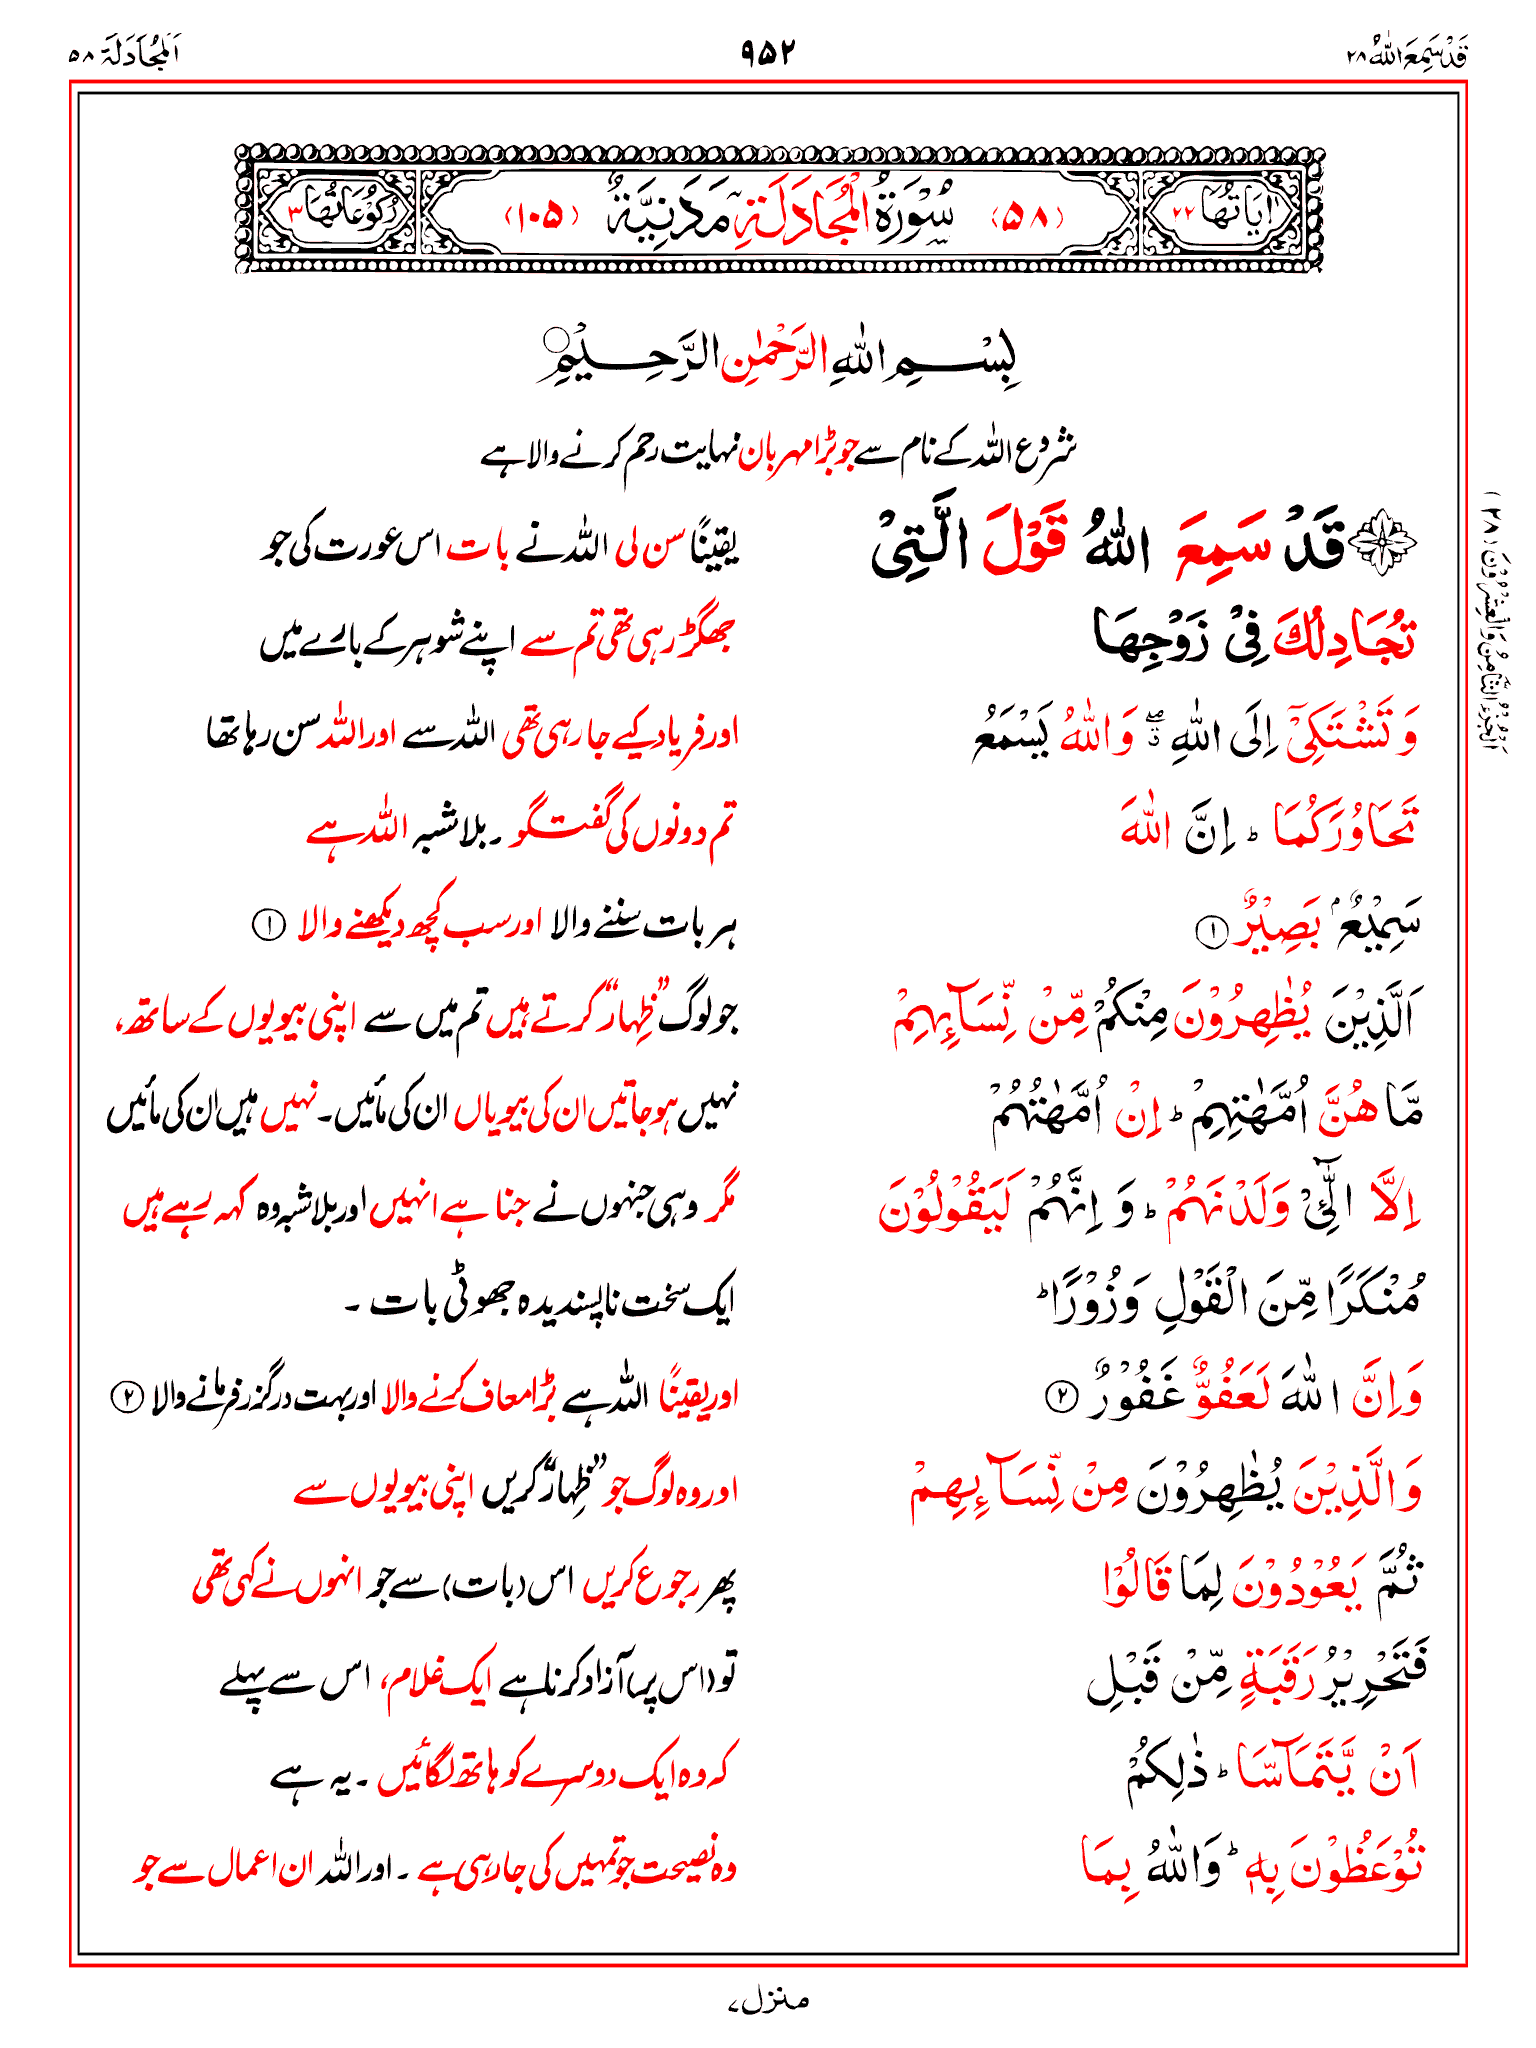 قَدْ سَمِعَ اللهُ ۲۸ ۹۵۲ اَلْمُجَادَلَة ۵۸
اٰيَاتُهَا ۲۲ (۵۸) سُوْرَةُ الْمُجَادَلَةِ مَدَنِيَّةٌ (۱۰۵) رُكُوْعَاتُهَا ۳
بِسْمِ اللهِ الرَّحْمٰنِ الرَّحِيْمِ
شروع اللہ کے نام سے جو بڑا مہربان نہایت رحم کرنے والا ہے
قَدْ سَمِعَ اللهُ قَوْلَ الَّتِيْ یقیناً سن لی اللہ نے بات اس عورت کی جو
تُجَادِلُكَ فِيْ زَوْجِهَا جھگڑ رہی تھی تم سے اپنے شوہر کے بارے میں
وَتَشْتَكِيْٓ اِلَى اللهِ ۖ وَاللهُ يَسْمَعُ اور فریاد کیے جا رہی تھی اللہ سے اور اللہ سن رہا تھا
تَحَاوُرَكُمَا ؕ اِنَّ اللهَ تم دونوں کی گفتگو ۔ بلا شبہ اللہ ہے
سَمِيْعٌۢ بَصِيْرٌ ۱ ہر بات سننے والا اور سب کچھ دیکھنے والا ۱
اَلَّذِيْنَ يُظٰهِرُوْنَ مِنْكُمْ مِّنْ نِّسَآئِهِمْ جو لوگ ”ظِہار“ کرتے ہیں تم میں سے اپنی بیویوں کے ساتھ،
مَّا هُنَّ اُمَّهٰتِهِمْ ؕ اِنْ اُمَّهٰتُهُمْ نہیں ہو جاتیں ان کی بیویاں ان کی مائیں۔ نہیں ہیں ان کی مائیں
اِلَّا الّٰٓئِيْ وَلَدْنَهُمْ ؕ وَ اِنَّهُمْ لَيَقُوْلُوْنَ مگر وہی جنہوں نے جنا ہے انہیں اور بلا شبہ وہ کہہ رہے ہیں
مُنْكَرًا مِّنَ الْقَوْلِ وَزُوْرًا ؕ ایک سخت ناپسندیدہ جھوٹی بات ۔
وَاِنَّ اللهَ لَعَفُوٌّ غَفُوْرٌ ۲ اور یقیناً اللہ ہے بڑا معاف کرنے والا اور بہت درگزر فرمانے والا ۲
وَالَّذِيْنَ يُظٰهِرُوْنَ مِنْ نِّسَآئِهِمْ اور وہ لوگ جو ”ظِہار“ کریں اپنی بیویوں سے
ثُمَّ يَعُوْدُوْنَ لِمَا قَالُوْا پھر رجوع کریں اس (بات) سے جو انہوں نے کہی تھی
فَتَحْرِيْرُ رَقَبَةٍ مِّنْ قَبْلِ تو (اس پر) آزاد کرنا ہے ایک غلام، اس سے پہلے
اَنْ يَّتَمَآسَّا ؕ ذٰلِكُمْ کہ وہ ایک دوسرے کو ہاتھ لگائیں ۔ یہ ہے
تُوْعَظُوْنَ بِهٖ ؕ وَاللهُ بِمَا وہ نصیحت جو تمہیں کی جا رہی ہے ۔ اور اللہ ان اعمال سے جو
اَلْجُزْءُ الثَّامِنُ وَالْعِشْرُوْنَ (۲۸)
منزل ۷